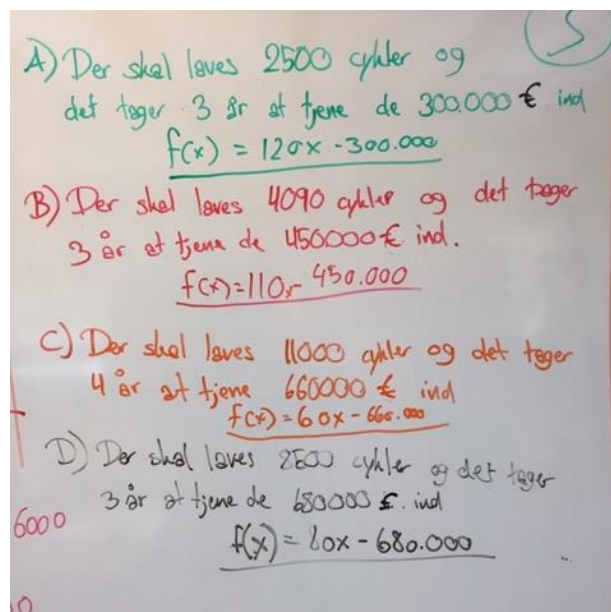 3
A) Der skal laves 2500 cykler og
det tager 3 år at tjene de 300.000 € ind
f(x) = 120x - 300.000
B) Der skal laves 4090 cykler og det tager
3 år at tjene de 450000 € ind.
f(x)=110,- 450.000
C) Der skal laves 11000 cykler og det tager
4 år at tjene 660000 € ind
f(x) = 60x - 660.000
D) Der skal laves 8500 cykler og det tager
3 år at tjene de 680000 £. ind
6000
f(x) = 80x - 680.000